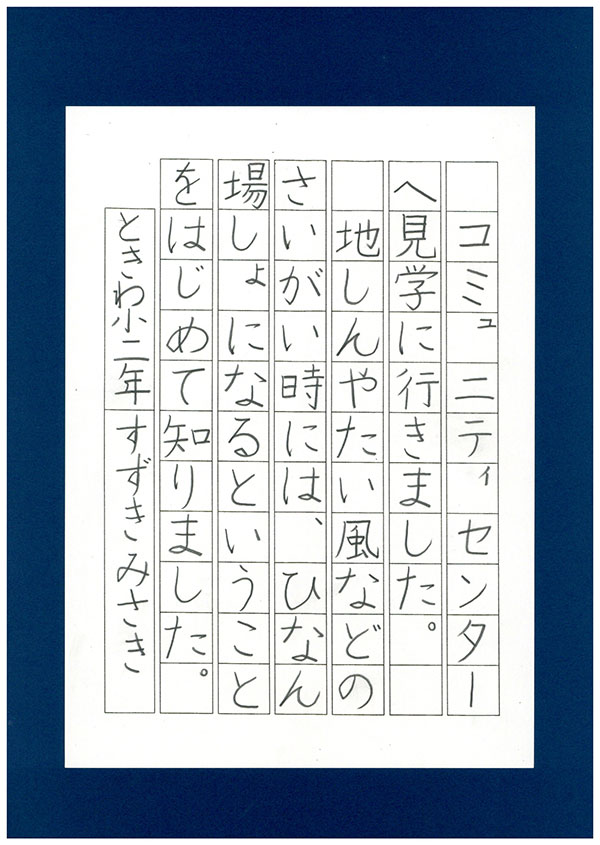 コミュニティセンター
へ見学に行きました。
地しんやたい風などの
さいがい時には、ひなん
場しょになるということ
をはじめて知りました。
ときわ小二年すずきみさき